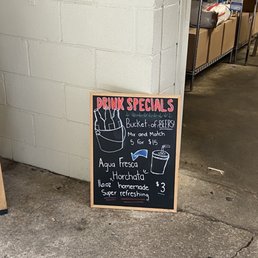 DRINK SPECIALS
Bucket of BEERS!
Mix and Match
5 for $15
Agua Fresca
"Horchata"
homemade
$3
Super refreshing